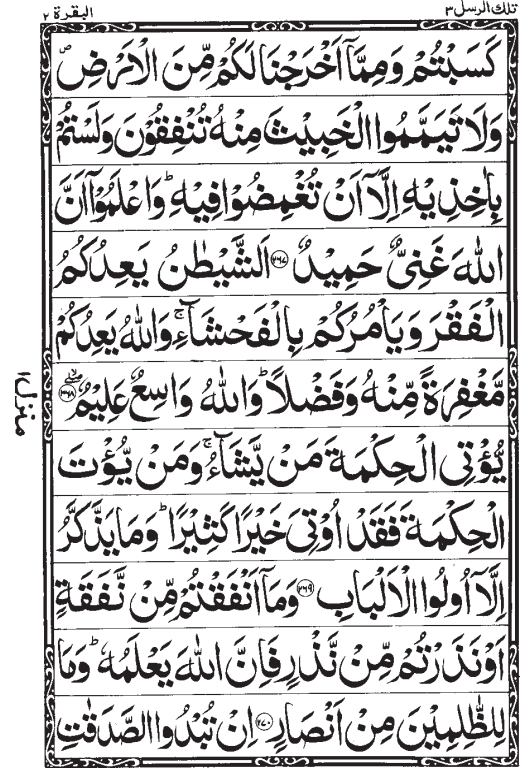 تلك الرسل ٣
البقرة ٢
كَسَبْتُمْ وَمِمَّاۤ اَخْرَجْنَا لَكُمْ مِّنَ الْاَرْضِ ۪
وَلَا تَيَمَّمُوا الْخَبِيْثَ مِنْهُ تُنْفِقُوْنَ وَلَسْتُمْ
بِاٰخِذِيْهِ اِلَّاۤ اَنْ تُغْمِضُوْا فِيْهِ ؕ وَاعْلَمُوْۤا اَنَّ
اللّٰهَ غَنِىٌّ حَمِيْدٌ ﴿۲۶۷﴾ اَلشَّيْطٰنُ يَعِدُكُمُ
الْفَقْرَ وَيَاْمُرُكُمْ بِالْفَحْشَآءِ ۚ وَاللّٰهُ يَعِدُكُمْ
مَّغْفِرَةً مِّنْهُ وَفَضْلًا ؕ وَاللّٰهُ وَاسِعٌ عَلِيْمٌ ﴿۲۶۸﴾
يُّؤْتِى الْحِكْمَةَ مَنْ يَّشَآءُ ۚ وَمَنْ يُّؤْتَ
الْحِكْمَةَ فَقَدْ اُوْتِىَ خَيْرًا كَثِيْرًا ؕ وَمَا يَذَّكَّرُ
اِلَّاۤ اُولُوا الْاَلْبَابِ ﴿۲۶۹﴾ وَمَاۤ اَنْفَقْتُمْ مِّنْ نَّفَقَةٍ
اَوْ نَذَرْتُمْ مِّنْ نَّذْرٍ فَاِنَّ اللّٰهَ يَعْلَمُهٗ ؕ وَمَا
لِلظّٰلِمِيْنَ مِنْ اَنْصَارٍ ﴿۲۷۰﴾ اِنْ تُبْدُوا الصَّدَقٰتِ
منزل ۱